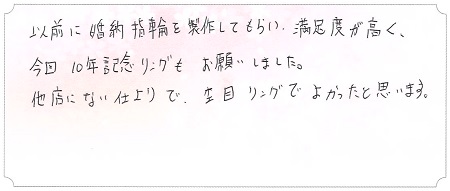 以前に婚約指輪を製作してもらい、満足度が高く、
今回10年記念リングもお願いしました。
他店にない仕上りで、杢目リングでよかったと思います。